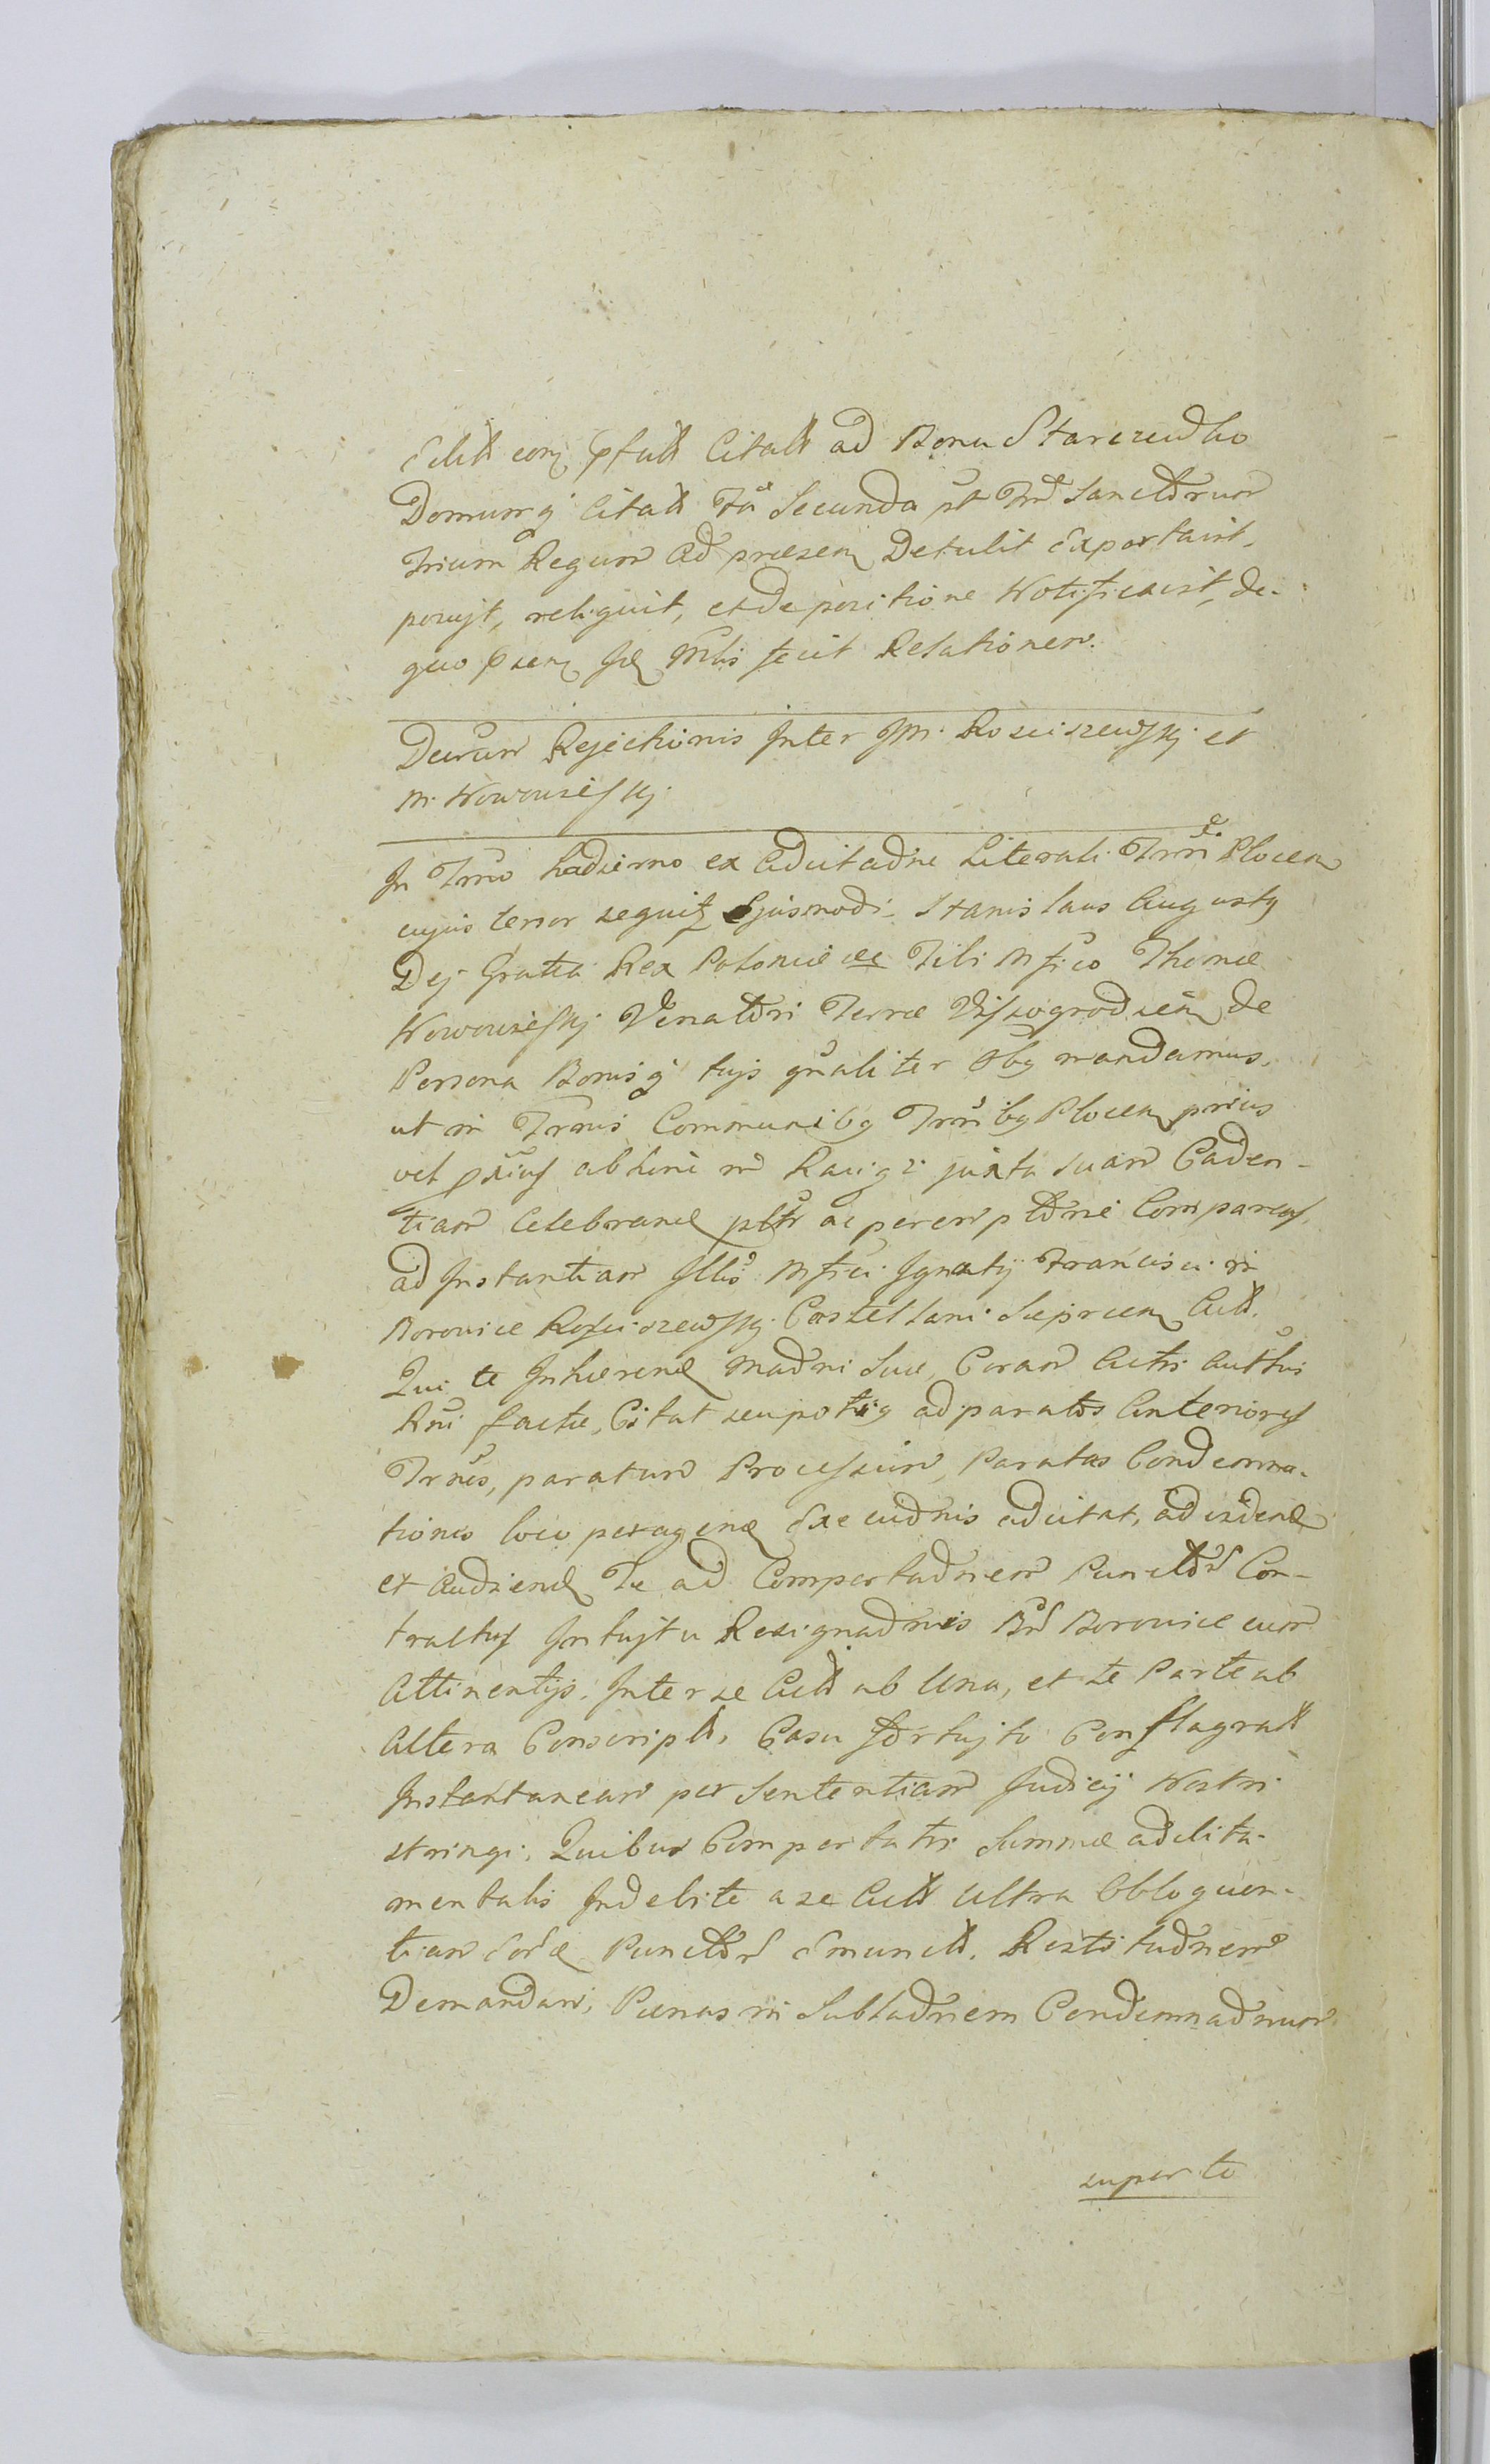 ad Bona Starczewsko
Domumq citatt Fa Secunda pt Sanctorum
Trium Regum ad praesen Detulit Exportavit,
posujt, reliquit, et de positione Notificavit, de
quo fecit Relationem.
Decrum Rejectionis Inter JM. Rosciszewskj et
M. Nowowieskj
In Trno hodierno ex Adcitaone Literali Trri Plocen
cujus tenor sequitr Ejusmodi. Stanislaus Augustq
Dej Gratia Rex Poloniae etc Tibi Mfico Thomae
Nowowieskj Venatori Terrae Vissogrodzien de
Persona Bonisq tujs gnaliter Obq mandamus,
ut in Trnis Communibq Trribq Plocen prius
vel abhinc in Raciąż juxta suam Caden-
tiam Celebrand pltr ac peremptorie Compareas,
ad Instantiam Illis Mfici Ignatij Francisci in
Borowice Rosciszewskj Castellani Sieprcen Actt.
Qui te Inhaerend Maoni Suae, Coram Actis Authis
Rni factae, Citat seu potiq ad paratos Anteriores
Trnos, paratum Processum, Paratas Condemna-
tiones loco peragend Execuonis adcitat, ad vidend
et Audiend Te ad Comportaonem Punctor Con-
tractus Intujtu Resignaonis Bor Borowice cum
Attinentijs, Inter se Actt ab Una, et te Parte ab
Altera Conscript, Casu fortujto Conflagratt
Instantaneam per Sententiam Judicij Nostri
stringi, Quibus Comportatis Summae adclita-
mentalis Indebite a se Actt Ultra Obloquen-
tiam Eord Punctor Emunctt, Restituonem
Demandari, Poenas in Sublaonem Condemnaonum
super te